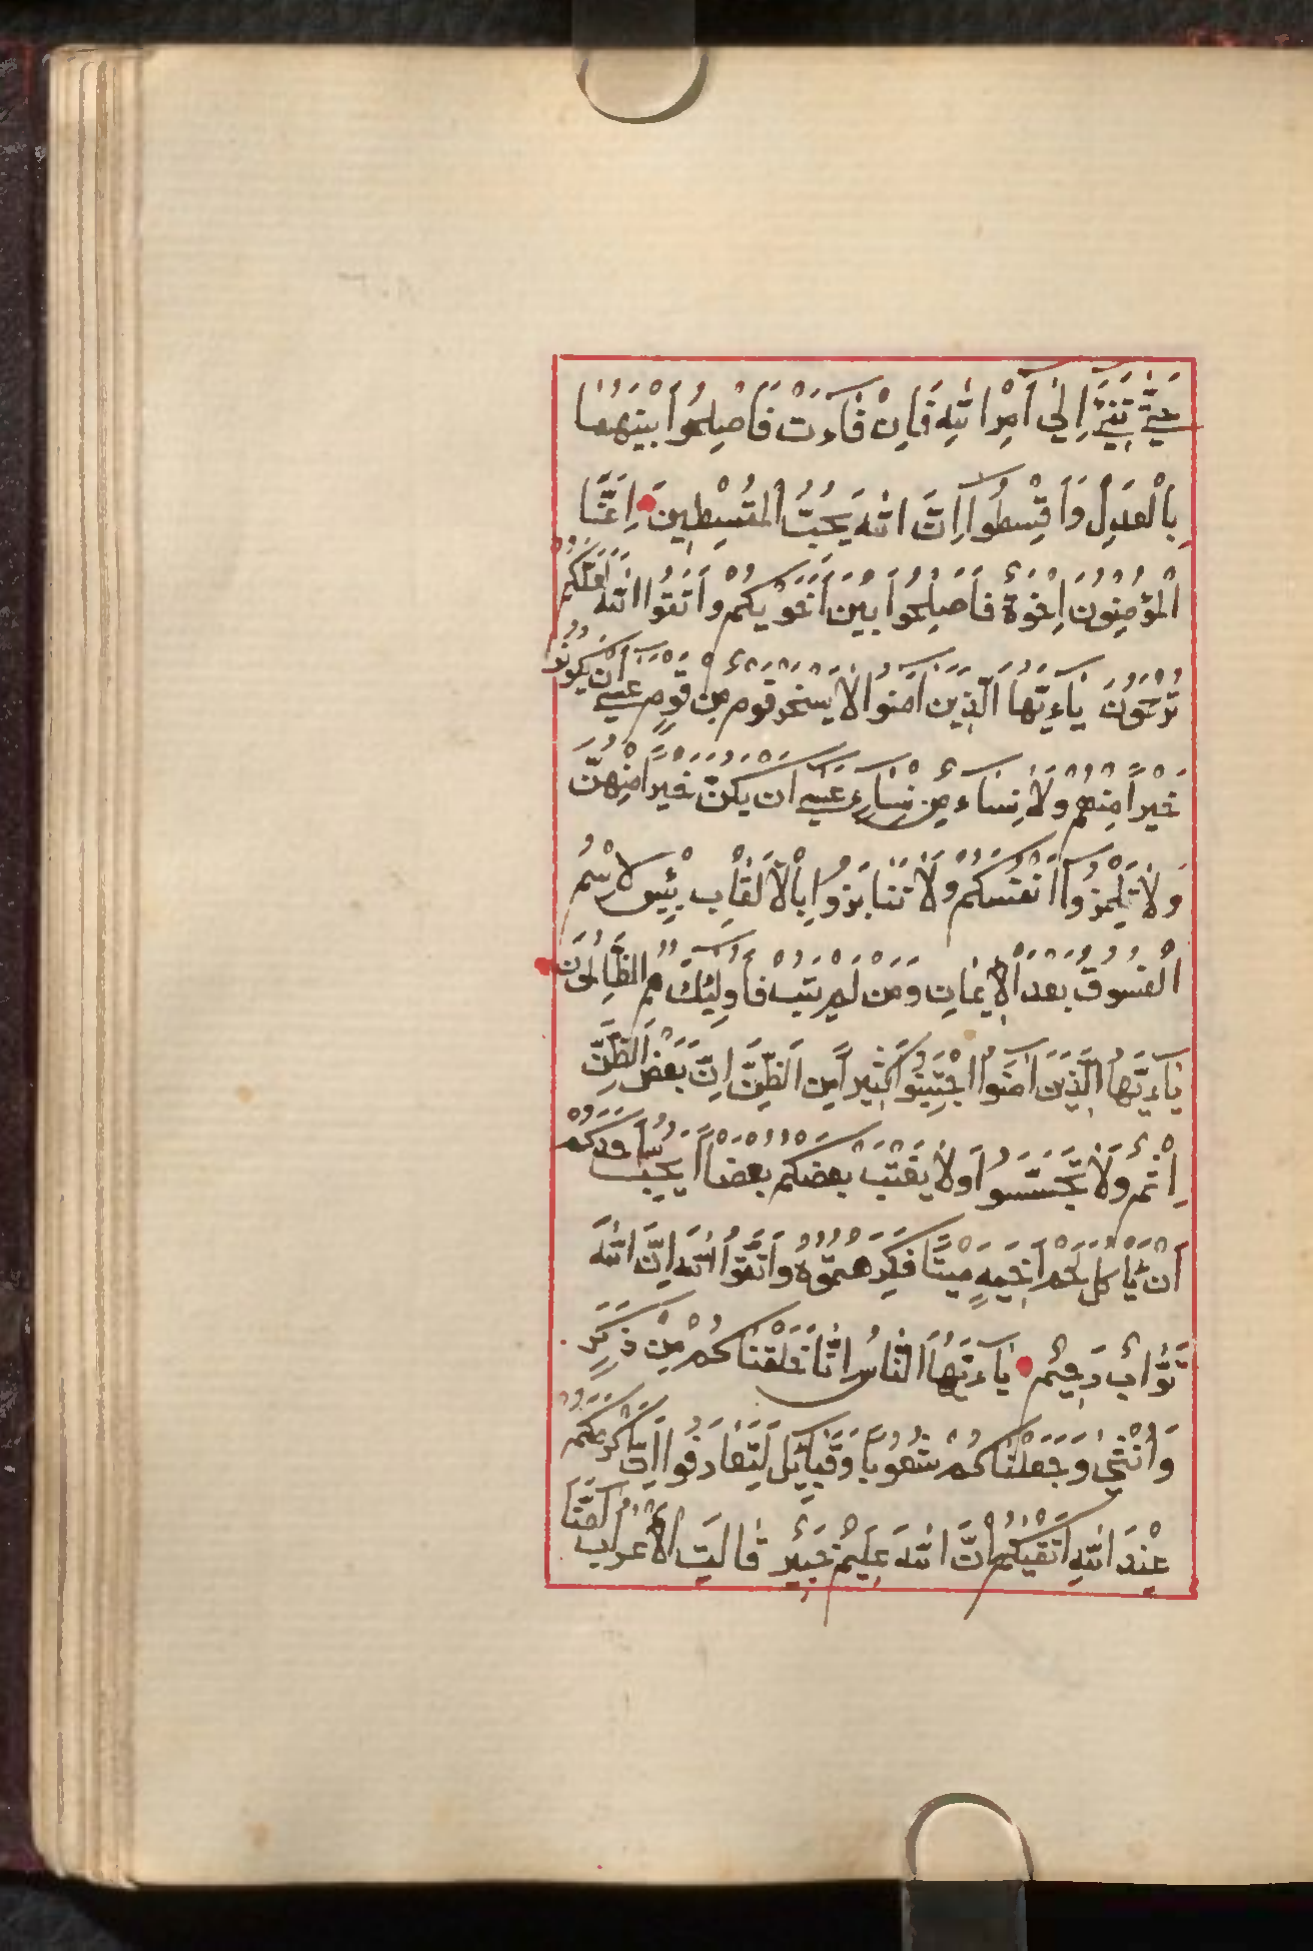 حَتَّى تَفِيءَ إِلَى أَمْرِ اللهِ فَإِنْ فَاءَتْ فَاَصْلِحُوا بَيْنَهُمَا
بِالْعَدْلِ وَاَقْسِطُوا اِنَّ اللهَ يُحِبُّ الْمُقْسِطِينَ اِنَّمَا
الْمُؤْمِنُونَ اِخْوَةٌ فَاَصْلِحُوا بَيْنَ اَخَوَيْكُمْ وَاتَّقُوا اللهَ لَعَلَّكُمْ
تُرْحَمُونَ يَاءَيُّهَا الَّذِينَ اٰمَنُوا لَا يَسْخَرْ قَوْمٌ مِنْ قَوْمٍ عَسٰى اَنْ يَكُونُوا
خَيْرًا مِنْهُمْ وَلَا نِسَاءٌ مِنْ نِسَاءٍ عَسٰى اَنْ يَكُنَّ خَيْرًا مِنْهُنَّ
وَلَا تَلْمِزُوا اَنْفُسَكُمْ وَلَا تَنَابَزُوا بِالْاَلْقَابِ بِئْسَ لاِسْمُ
الْفُسُوقُ بَعْدَ الْاِيمَانِ وَمَنْ لَمْ يَتُبْ فَاُولٰئِكَ هُمُ الظَّالِمُونَ
يَاءَيُّهَا الَّذِينَ اٰمَنُوا اجْتَنِبُوا كَثِيرًا مِنَ الظَّنِّ اِنَّ بَعْضَ الظَّنِّ
اِثْمٌ وَلَا تَجَسَّسُوا وَلَا يَغْتَبْ بَعْضُكُمْ بَعْضًا اَيُحِبُّ اَحَدُكُمْ
اَنْ يَأْكُلَ لَحْمَ اَخِيهِ مَيْتًا فَكَرِهْتُمُوهُ وَاتَّقُوا اللهَ اِنَّ اللهَ
تَوَّابٌ رَحِيمٌ يَاءَيُّهَا النَّاسُ اِنَّا خَلَقْنَاكُمْ مِنْ ذَكَرٍ
وَاُنْثٰى وَجَعَلْنَاكُمْ شُعُوبًا وَقَبَائِلَ لِتَعَارَفُوا اِنَّ اَكْرَمَكُمْ
عِنْدَ اللهِ اَتْقٰيكُمْ اِنَّ اللهَ عَلِيمٌ خَبِيرٌ قَالَتِ الْاَعْرَابُ اٰمَنَّا